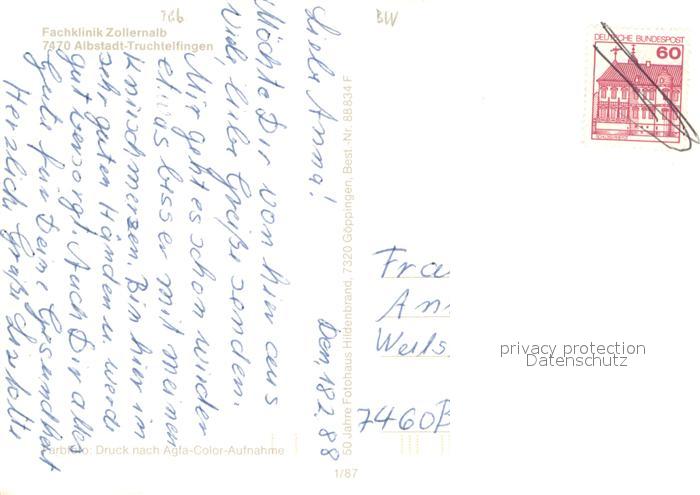 766
BW
Fachklinik Zollernalb
7470 Albstadt-Truchtelfingen
DEUTSCHE BUNDESPOST
60
Den, 18 2 88
Liebe Anna!
Möchte Dir von hier aus
viele, liebe Grüße senden.
Mir geht es schon wieder
etwas besser mit meinen
Knieschmerzen. Bin hier in
sehr guten Händen u. werde
gut versorgt. Auch Dir alles
Gute für Deine Gesundheit
Herzliche Grüße
50 Jahre Fotohaus Hildenbrand, 7320 Göppingen, Best.-Nr. 88834 F
Fra
An
Weils
7460 B
privacy protection
Datenschutz
Farbfoto: Druck nach Agfa-Color-Aufnahme
1/87